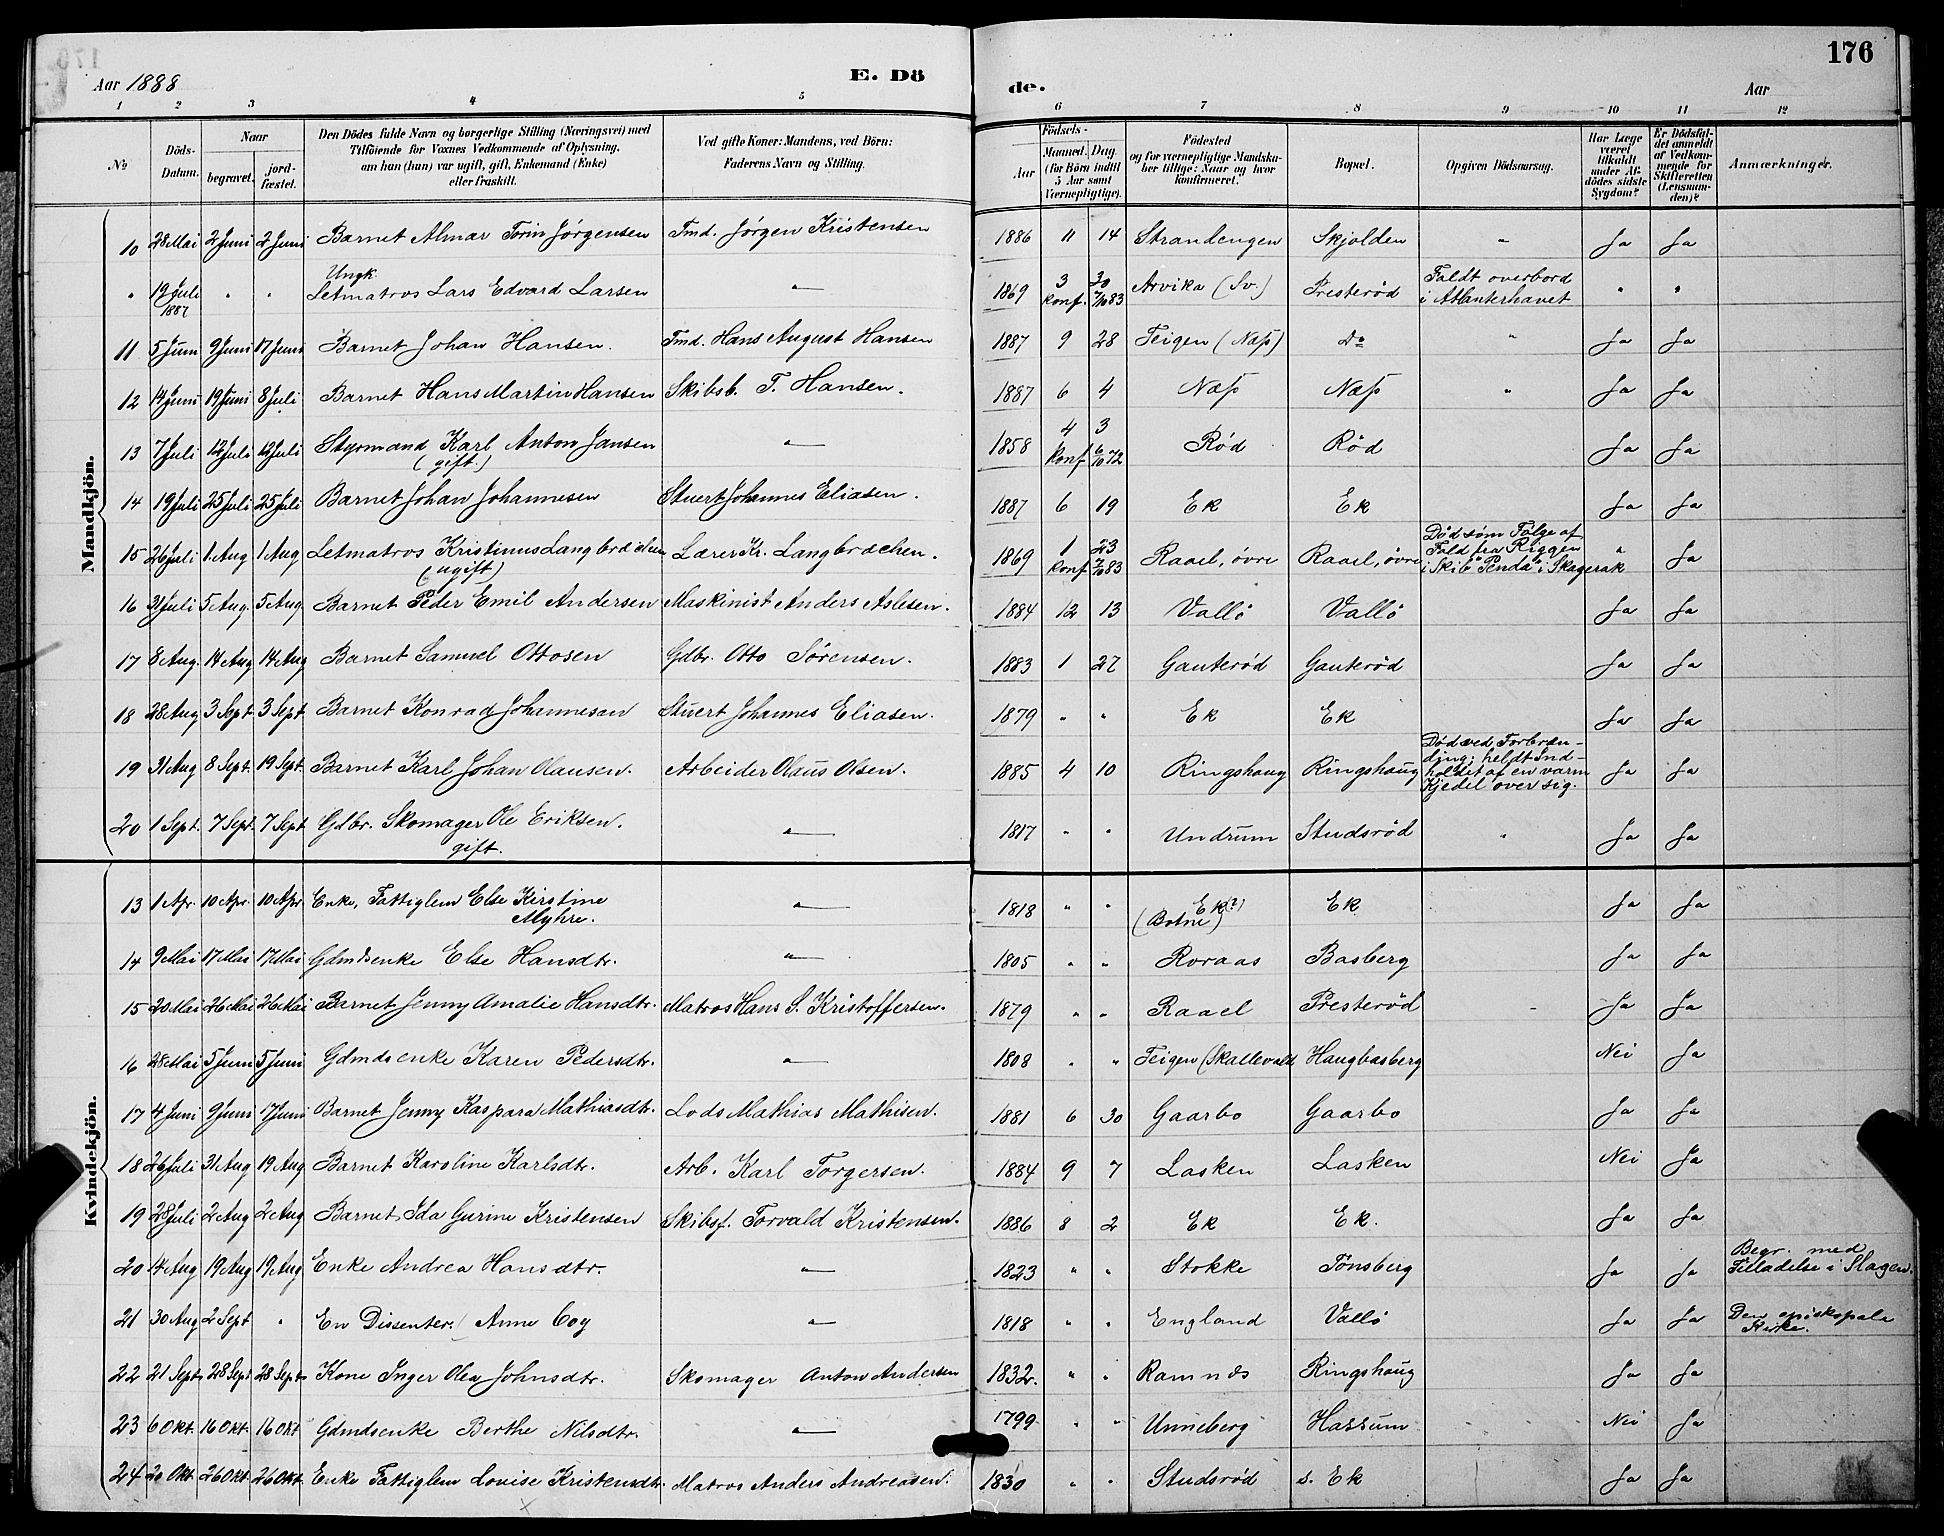 Aar 1888
E. Dö
de.
176
Aar
1 2 3 4 5 6 7 8 9 10 11 12
No
Döds-Datum.
Naar
begravet.
jord-fæstet.
Den Dödes fulde Navn og borgerlige Stilling (Næringsvei) med
Tilföiende for Voxnes Vedkommende af Oplysning,
om han (hun) var ugift, gift, Enkemand (Enke)
eller fraskilt.
Ved gifte Koner: Mandens, ved Börn:
Faderens Navn og Stilling.
Födsels-
Aar
Maaned. Dag.
(for Börn indtil
5 Aar samt
Værnepligtige).
Födested
og for værnepligtige Mandska-
ber tillige: Naar og hvor
konfirmeret.
Bopæl.
Opgiven Dödsaarsag.
Har Læge
været
tilkaldt
under Af-
dödes sidste
Sygdom?
Er Dödsfal-
det anmeldt
af Vedkom-
mende for
Skifteretten
(Lensman-
den)?
Anmærkninger.
Mandkjön.
10 28 Mai 2 Juni 2 Juni Barnet Almar Torin Jørgensen Tmd. Jørgen Kristensen 1886 11 14 Strandengen Skjolden " Ja Ja
" 19 Juli 1887 " " Ungk. Letmatros Lars Edvard Larsen " 1869 3 30 konf. 7/10 83 Arvika (Sv.) Presterød Faldt overbord i Atlanterhavet " "
11 5 Juni 9 Juni 17 Juni Barnet Johan Hansen. Tmd. Hans August Hansen 1887 9 28 Teigen (Næs) Do " Ja Ja
12 14 Juni 19 Juni 8 Juli Barnet Hans Martin Hansen Skibsb. T. Hansen. 1887 6 4 Næs Næs " Ja Ja
13 7 Juli 12 Juli 12 Juli Styrmand Karl Anton Jansen (gift) " 1858 4 3 konf 6/10 72 Rød Rød Ja Ja
14 19 Juli 25 Juli 25 Juli Barnet Johan Johannesen Stuert Johannes Eliasen. 1887 6 19 Ek Ek Ja Ja
15 26 Juli 1 Aug 1 Aug Letmatros Kristinus Langbrechen (ugift) Lærer Kr. Langbrechen. 1869 1 23 konf 7/10 83 Raael, øvre Raael, øvre Død som Følge af Fald fra Riggen i Skib "Penda" i Skagerak " Ja
16 31 Juli 5 Aug. 5 Aug Barnet Peder Emil Andersen Maskinist Anders Aslesen. 1884 12 13 Vallö Vallö Ja Ja
17 8 Aug. 14 Aug 14 Aug Barnet Samuel Ottosen Gdbr. Otto Sørensen. 1883 1 27 Gauterød Gauterød Ja Ja
18 28 Aug 3 Sept. 3 Sept. Barnet Konrad Johannesen Stuert Johannes Eliasen. 1879 " " Ek Ek Ja Ja
19 31 Aug 8 Sept. 19 Sept. Barnet Karl Johan Olausen. Arbeider Olaus Olsen. 1885 4 10 Ringshaug Ringshaug Død ved Forbrænding; heldt Indholdet af en varm Kjedel over sig. Ja Ja
20 1 Sept. 7 Sept. 7 Sept Gdbr. Skomager Ole Eriksen. gift. " 1817 " " Undrum Studsrød " Ja Ja
Kvindekjön.
13 1 Apr. 10 Apr. 10 Apr Enke, Fattiglem Else Kirstine Myhre. " 1818 " " Ek(?) (Botne) Ek Ja Ja
14 9 Mai 17 Mai 17 Mai Gdmdsenke Else Hansdtr. " 1805 " " Roraas Basberg Ja Ja
15 20 Mai 26 Mai 26 Mai Barnet Jenny Amalie Hansdtr. Matros Hans S. Kristoffersen. 1879 " " Raael Presterød Ja Ja
16 28 Mai 5 Juni 5 Juni Gdmdsenke Karen Pedersdtr. " 1808 " " Teigen (Skallevald Haugbasberg Nei Ja
17 4 Juni 9 Juni 17 Juni Barnet Jenny Kaspara Mathiasdtr. Lods Mathias Mathisen. 1881 6 30 Gaarbo Gaarbo Ja Ja
18 26 Juli 31 Aug 19 Aug Barnet Karoline Karlsdtr. Arb. Karl Torgersen. 1884 9 7 Lasken Lasken Nei Ja
19 28 Juli 2 Aug 2 Aug Barnet Ida Gurine Kristensen Skibsf. Torvald Kristensen. 1886 8 2 Ek Ek. Ja Ja
20 14 Aug 19 Aug 19 Aug Enke Andrea Hansdtr. " 1823 " " Stokke Tönsberg Ja Ja Begr. med Tilladelse i Slagen.
21 30 Aug 2 Sept " En Dissenter, Anne Coy " 1818 " " England Vallö Ja Ja Den episkopale Kirke.
22 21 Sept 28 Sept 28 Sept. Kone Inger Olea Johnsdtr. Skomager Anton Andersen 1832. " " Ramnæs Ringshaug Ja Ja
23 6 Okt. 16 Okt. 16 Okt Gdmdsenke Berthe Nilsdtr. " 1799 " " Unneberg Hassum Nei Ja
24 20 Okt. 26 Okt. 26 Okt. Enke Fattiglem Lovise Kristensdtr. Matros Anders Andreasen. 1830 " " Studsrød s. Ek Ja Ja